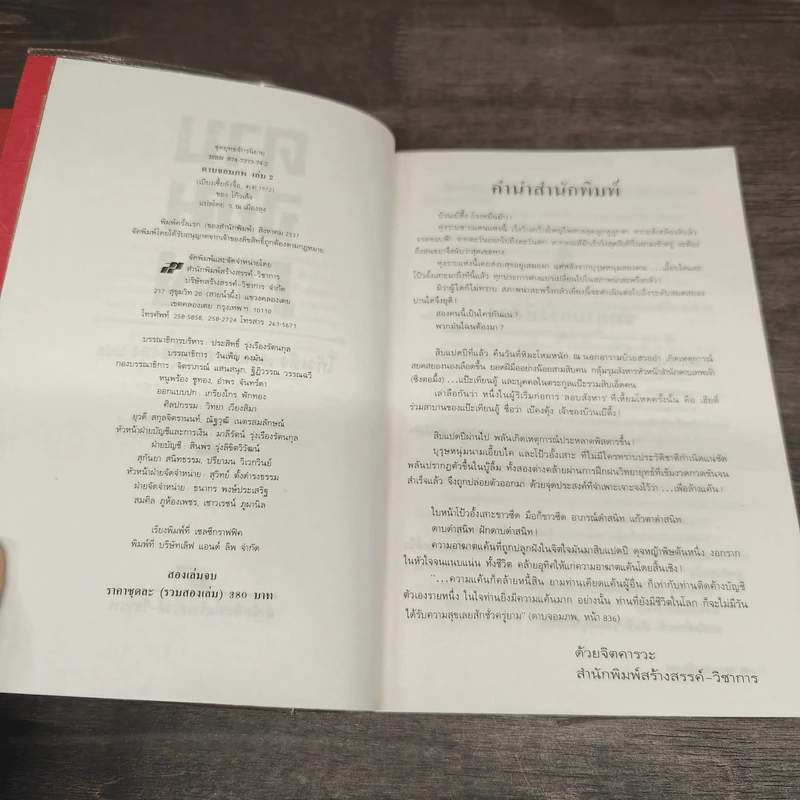 ชุดยุทธจักรนิยาย
ISBN 974-7373-74-2
ดาบจอมภพ เล่ม 2
(เปียงเซี้ยลังจื้อ, ค.ศ.1972)
ของ โก้วเล้ง
แปลโดย ว. ณ เมืองลุง
พิมพ์ครั้งแรก (ของสำนักพิมพ์) สิงหาคม 2537
จัดพิมพ์โดยได้รับอนุญาตจากเจ้าของลิขสิทธิ์ถูกต้องตามกฎหมาย
จัดพิมพ์และจัดจำหน่ายโดย
สำนักพิมพ์สร้างสรรค์-วิชาการ
บริษัทสร้างสรรค์-วิชาการ จำกัด
217 สุขุมวิท 20 (สายน้ำผึ้ง) แขวงคลองเตย
เขตคลองเตย กรุงเทพฯ 10110
โทรศัพท์ 258-5858, 258-2724 โทรสาร 261-5671
บรรณาธิการบริหาร : ประสิทธิ์ รุ่งเรืองรัตนกุล
บรรณาธิการ : วันเพ็ญ คงมั่น
กองบรรณาธิการ : จิตราภรณ์ แสนสนุก, ฐิฏิวรรณ วรรณฉวี
หนูพร้อง ชูทอง, อำพร จันทรัตา
ออกแบบปก : เกรียงไกร ฟักทอง
ศิลปกรรม : วิทยา เวียงสิมา
ยุวดี สกุลจิตรานนท์, ณัฐวุฒิ เนตรสมลักษณ์
หัวหน้าฝ่ายบัญชีและการเงิน : มาลีรัตน์ รุ่งเรืองรัตนกุล
ฝ่ายบัญชี : สินพร รุ่งลิขิตวิวัฒน์
สุกันยา สนิทธรรม, ปรียามน วิเวกวินย์
หัวหน้าฝ่ายจัดจำหน่าย : สุวิทย์ ตั้งดำรงธรรม
ฝ่ายจัดจำหน่าย : ธนากร พงษ์ประเสริฐ
สมศิล ภูห้องเพชร, เชาวเรชน์ ภูผานิล
เรียงพิมพ์ที่ เซลซีกราฟฟิค
พิมพ์ที่ บริษัทเลิฟ แอนด์ ลิพ จำกัด
สองเล่มจบ
ราคาชุดละ (รวมสองเล่ม) 380 บาท
คำนำสำนักพิมพ์
สองคนนี้เป็นใครกันแน่ ?
พวกมันไฉนต้องมา ?
สิบแปดปีที่แล้ว คืนวันที่หิมะโหมหนัก ณ นอกอารามบ๊วยฮวยอำ เกิดเหตุการณ์
สยดสยองนองเลือดขึ้น ยอดฝีมืออย่างน้อยสามสิบคน กลุ้มรุมสังหารหัวหน้าสำนักดาบเทพเจ้า
(ซิ้งตอมึ้ง) ...แป๊ะเทียนอู้ และบุคคลในตระกูลแป๊ะรวมสิบเอ็ดคน
เล่าลือกันว่า หนึ่งในผู้ริเริ่มก่อการ 'ลอบสังหาร' ที่เหี้ยมโหดครั้งนั้น คือ เฮียตี๋
ร่วมสาบานของแป๊ะเทียนอู้ ชื่อว่า เบ๊คงคุ้ง เจ้าของบ้วนเบ๊ตึ้ง !
สิบแปดปีผ่านไป พลันเกิดเหตุการณ์ประหลาดพิสดารขึ้น !
บุรุษหนุ่มนามเอี้ยบไค และโป้วอั้งเสาะ ที่ไม่มีใครทราบประวัติชาติกำเนิดแน่ชัด
พลันปรากฏตัวขึ้นในบู๊ลิ้ม ทั้งสองต่างคล้ายผ่านการฝึกฝนวิทยายุทธ์ที่เข้มงวดกวดขันจน
สำเร็จแล้ว จึงถูกปล่อยตัวออกมา ด้วยจุดประสงค์ที่จำเพาะเจาะจงไว้ว่า ...เพื่อล้างแค้น !
ใบหน้าโป้วอั้งเสาะขาวซีด มือก็ขาวซีด อาภรณ์ดำสนิท แก้วตาดำสนิท
ดาบดำสนิท ฝักดาบดำสนิท !
ความอาฆาตแค้นที่ถูกปลูกฝังในจิตใจมันมาสิบแปดปี ดุจหญ้าพิษต้นหนึ่ง งอกราก
ในหัวใจจนแนบแน่น ทั้งชีวิต คล้ายอุทิศให้แก่ความอาฆาตแค้นโดยสิ้นเชิง !
"...ความแค้นก็คล้ายหนี้สิน ยามท่านเคียดแค้นผู้อื่น ก็เท่ากับท่านติดค้างบัญชี
ตัวเองรายหนึ่ง ในใจท่านยิ่งมีความแค้นมาก อย่างนั้น ท่านที่ยังมีชีวิตในโลก ก็จะไม่มีวัน
ได้รับความสุขเลยสักชั่วครู่ยาม" (ดาบจอมภพ, หน้า 836)
ด้วยจิตคารวะ
สำนักพิมพ์สร้างสรรค์-วิชาการ